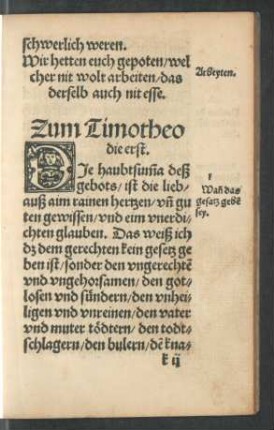 schwerlich weren.
Wir hetten euch gepoten/wel
cher nit wolt arbeiten/das
derselb auch nit esse.
Arbeyten.
Zum Timotheo
die erst.
DIe haubtsum̃a deß
gebots/ist die lieb/
auß aim rainen hertzen/vñ gu
ten gewissen/vnd eim vnerdi-
chten glauben. Das weiß ich
dz dem gerechten kein gesetz ge
ben ist/sonder den vngerechtẽ
vnd vngehorsamen/den got-
losen vnd sündern/den vnhei-
ligen vnd vnreinen/den vater
vnd muter tödtern/den todt-
schlagern/den bulern/dẽ kna-
1
Wañ das
gesatz gebẽ
sey.
k ij